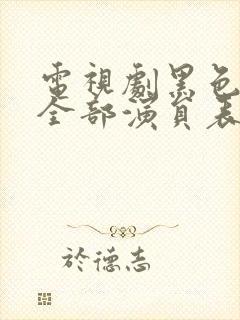 電視劇黑色
全部演員表
於德志